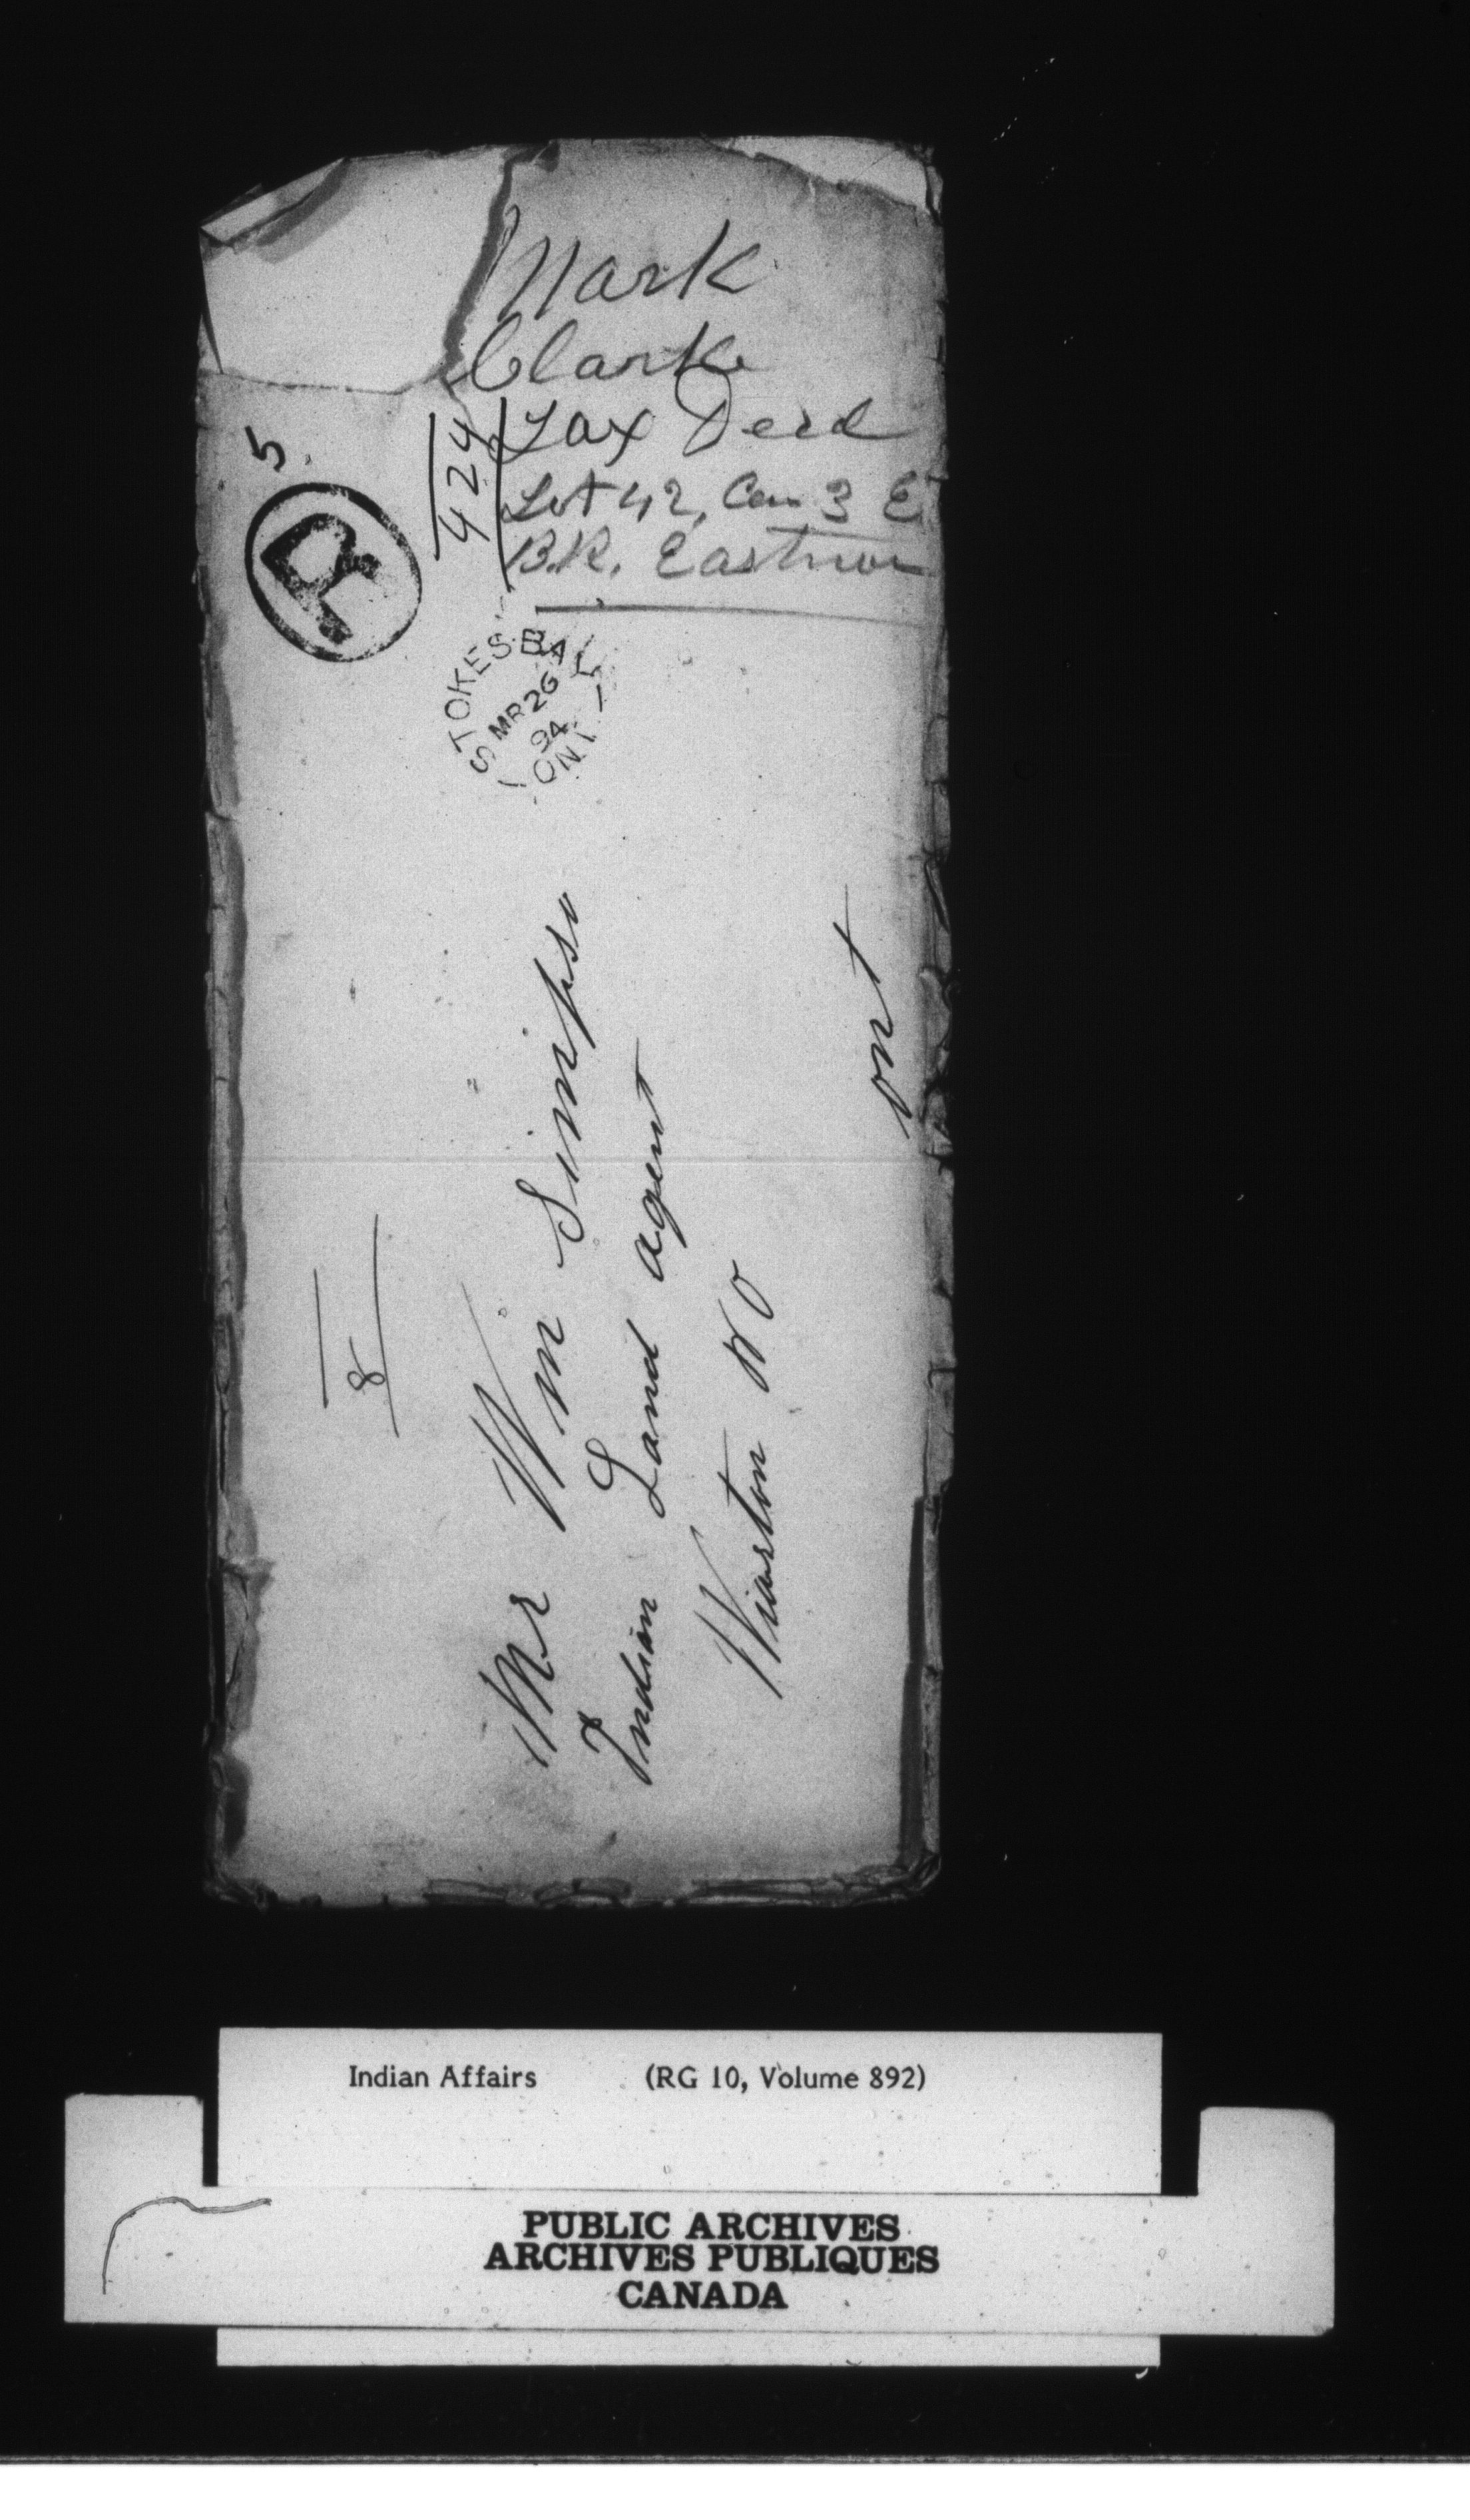 Mark
Clarke
Tax Deed
Lot 42, Con 3 E
B.R. Eastnor
424
5
R
STOKES BAY
MR 26
94
ONT
8
Mr Wm Simpso
Indian Land agent
Wiarton PO
ont
Indian Affairs (RG 10, Volume 892)
PUBLIC ARCHIVES
ARCHIVES PUBLIQUES
CANADA